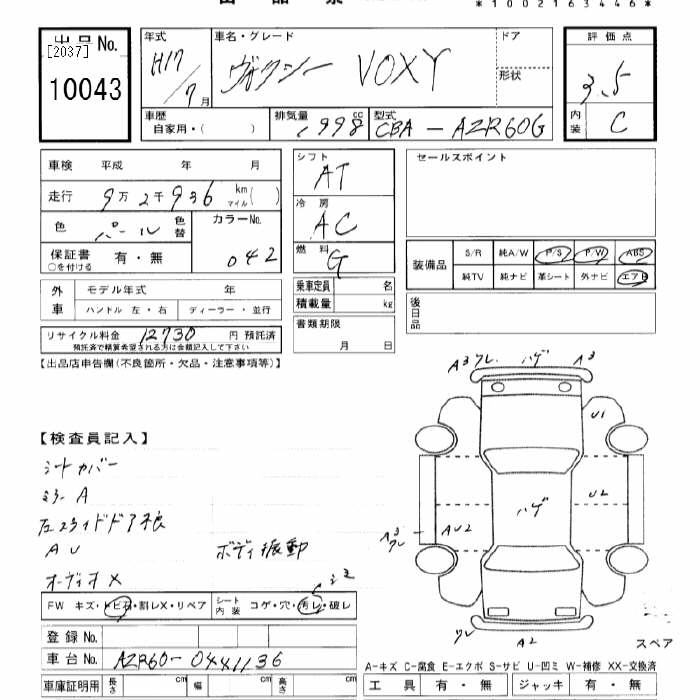 *1002163446*
出品No.
[2037]
10043
年式 H17/7月
車名・グレード ヴォクシー VOXY
ドア
形状
評価点 3.5
内装 C
車歴 自家用・( )
排気量 1998 cc
型式 CBA-AZR60G
車検 平成 年 月
走行 9万2千936 km マイル( )
色 パール 色替
カラーNo. 042
保証書 有・無
○を付ける
シフト AT
冷房 AC
燃料 G
乗車定員 名
積載量 kg
書類期限 月 日
セールスポイント
装備品 S/R 純A/W P/S P/W ABS
純TV 純ナビ 革シート 外ナビ エアB
後日品
外車 モデル年式 年
ハンドル 左・右 ディーラー・並行
リサイクル料金 12730 円 預託済
預託済で精算希望される方は金額記入して下さい
【出品店申告欄(不良箇所・欠品・注意事項等)】
【検査員記入】
シートカバー
ミラー A
左スライドドア
AU
ボディ振動
オーディオ×
シミ
FW キズ・トビ石・割レX・リペア シート内装 コゲ・穴・汚レ・破レ
登録No.
車台No. AZR60-0441136
車庫証明用 長さ cm 幅 cm 高さ cm
A3 ワレ ハゲ A3
U1
U2
ハゲ
A3 ワレ
AU2
ワレ
A2
スペア
A-キズ C-腐食 E-エクボ S-サビ U-凹ミ W-補修 XX-交換済
工具 有・無 ジャッキ 有・無